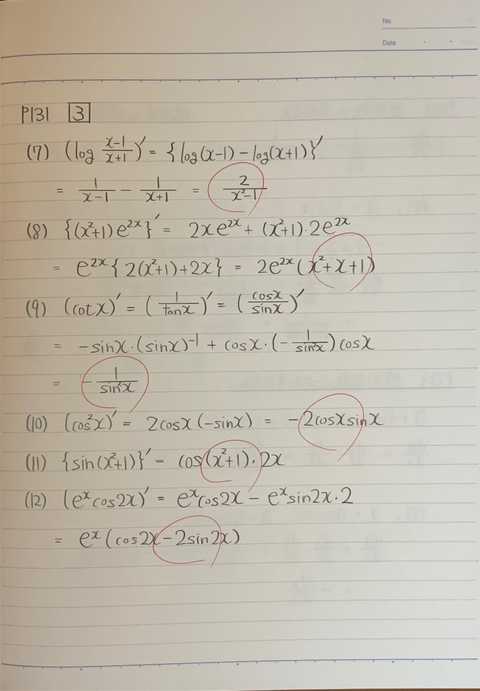 No.
Date
P131 3
(7) (log x-1/x+1)' = {log(x-1) - log(x+1)}'
= 1/x-1 - 1/x+1 = 2/x²-1
(8) {(x²+1)e²ˣ}' = 2xe²ˣ + (x²+1)·2e²ˣ
= e²ˣ{2(x²+1)+2x} = 2e²ˣ(x²+x+1)
(9) (cotx)' = (1/tanx)' = (cosx/sinx)'
= -sinx·(sinx)⁻¹ + cosx·(-1/sin²x)cosx
= -1/sin²x
(10) (cos²x)' = 2cosx(-sinx) = -2cosxsinx
(11) {sin(x²+1)}' = cos(x²+1)·2x
(12) (eˣcos2x)' = eˣcos2x - eˣsin2x·2
= eˣ(cos2x-2sin2x)